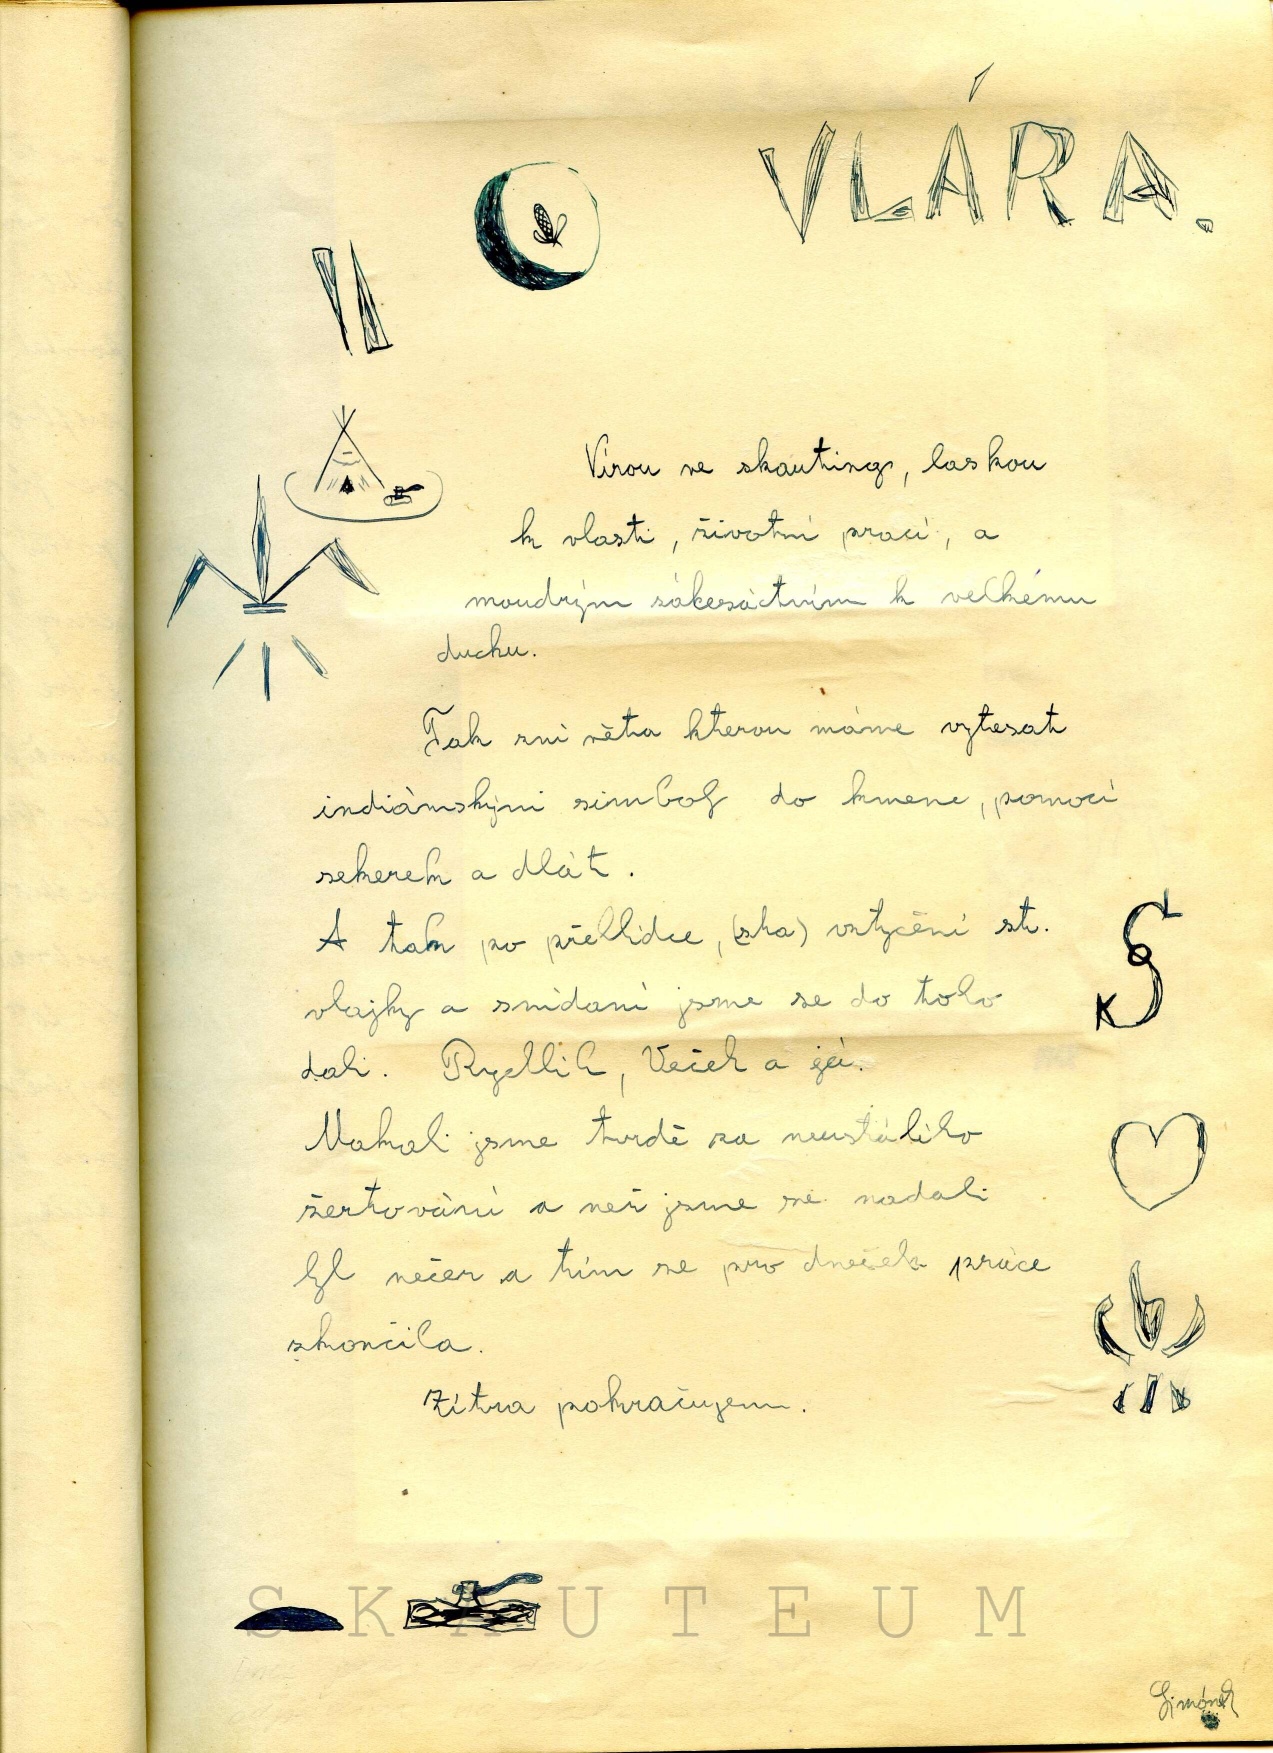 VLÁRA.
Vírou ve skauting, laskou
k vlasti, životní prací, a
moudrým zákesáctvím k velkému
duchu.
Tak zní věta kterou máme vytesat
indiánskými simboly do kmene, pomocí
sekerek a dlát.
A tak po přehlídce, (ska) vztyčení st.
vlajky a snídaní jsme se do toho
dali. Rychlík, Veček a já.
Makali jsme tvrdě za neustálího
žertování a než jsme se nadali
byl večer a tím se pro dnešek práce
skončila.
Zítra pokračujem.
SKAUTEUM
Simónek